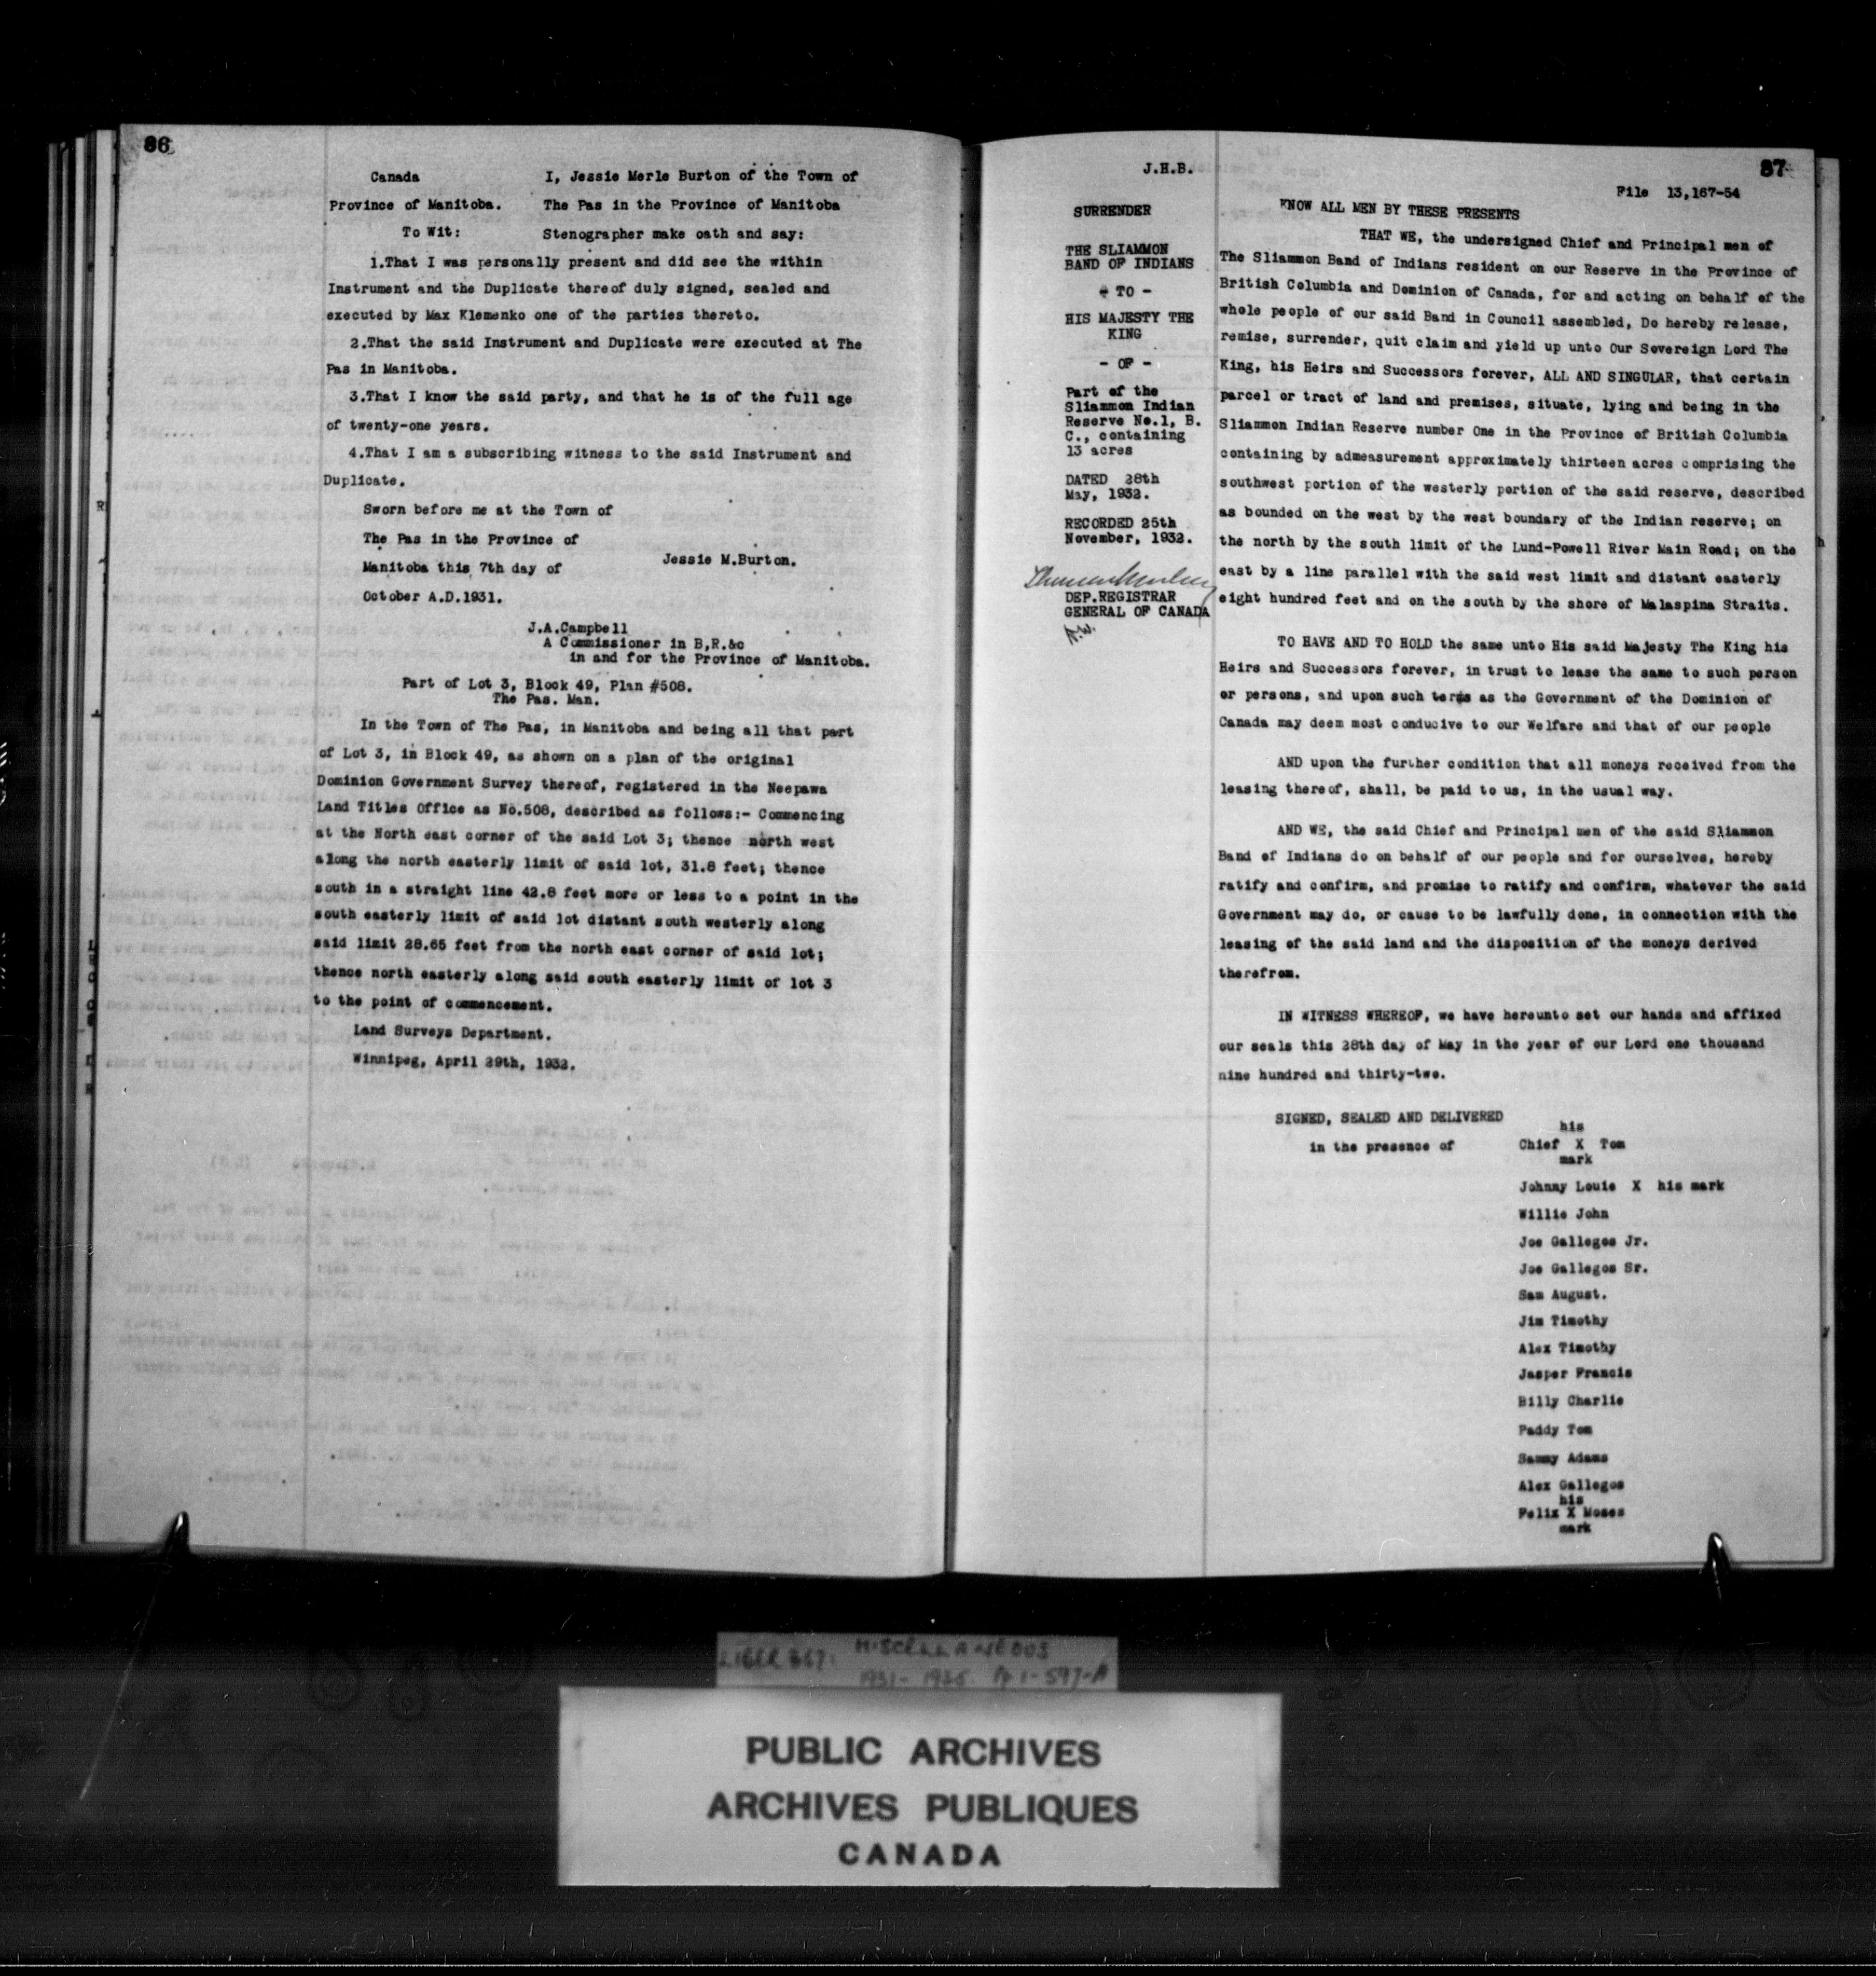 86
Canada I, Jessie Merle Burton of the Town of
Province of Manitoba. The Pas in the Province of Manitoba
To Wit: Stenographer make oath and say:
1.That I was personally present and did see the within
Instrument and the Duplicate thereof duly signed, sealed and
executed by Max Klemenko one of the parties thereto.
2.That the said Instrument and Duplicate were executed at The
Pas in Manitoba.
3.That I know the said party, and that he is of the full age
of twenty-one years.
4.That I am a subscribing witness to the said Instrument and
Duplicate.
Sworn before me at the Town of
The Pas in the Province of
Manitoba this 7th day of
Jessie M.Burton.
October A.D.1931.
J.A.Campbell
A Commissioner in B,R.&c
in and for the Province of Manitoba.
Part of Lot 3, Block 49, Plan #508.
The Pas. Man.
In the Town of The Pas, in Manitoba and being all that part
of Lot 3, in Block 49, as shown on a plan of the original
Dominion Government Survey thereof, registered in the Neepawa
Land Titles Office as No.508, described as follows:- Commencing
at the North east corner of the said Lot 3; thence north west
along the north easterly limit of said lot, 31.8 feet; thence
south in a straight line 42.8 feet more or less to a point in the
south easterly limit of said lot distant south westerly along
said limit 28.65 feet from the north east corner of said lot;
thence north easterly along said south easterly limit of lot 3
to the point of commencement.
Land Surveys Department.
Winnipeg, April 29th, 1932.
J.H.B.
87
File 13,167-54
SURRENDER
THE SLIAMMON
BAND OF INDIANS
- TO -
HIS MAJESTY THE
KING
- OF -
Part of the
Sliammon Indian
Reserve No.1, B.
C., containing
13 acres
DATED 28th
May, 1932.
RECORDED 25th
November, 1932.
DEP.REGISTRAR
GENERAL OF CANADA
KNOW ALL MEN BY THESE PRESENTS
THAT WE, the undersigned Chief and Principal men of
The Sliammon Band of Indians resident on our Reserve in the Province of
British Columbia and Dominion of Canada, for and acting on behalf of the
whole people of our said Band in Council assembled, Do hereby release,
remise, surrender, quit claim and yield up unto Our Sovereign Lord The
King, his Heirs and Successors forever, ALL AND SINGULAR, that certain
parcel or tract of land and premises, situate, lying and being in the
Sliammon Indian Reserve number One in the Province of British Columbia
containing by admeasurement approximately thirteen acres comprising the
southwest portion of the westerly portion of the said reserve, described
as bounded on the west by the west boundary of the Indian reserve; on
the north by the south limit of the Lund-Powell River Main Road; on the
east by a line parallel with the said west limit and distant easterly
eight hundred feet and on the south by the shore of Malaspina Straits.
TO HAVE AND TO HOLD the same unto His said Majesty The King his
Heirs and Successors forever, in trust to lease the same to such person
or persons, and upon such terms as the Government of the Dominion of
Canada may deem most conducive to our Welfare and that of our people
AND upon the further condition that all moneys received from the
leasing thereof, shall, be paid to us, in the usual way.
AND WE, the said Chief and Principal men of the said Sliammon
Band of Indians do on behalf of our people and for ourselves, hereby
ratify and confirm, and promise to ratify and confirm, whatever the said
Government may do, or cause to be lawfully done, in connection with the
leasing of the said land and the disposition of the moneys derived
therefrom.
IN WITNESS WHEREOF, we have hereunto set our hands and affixed
our seals this 28th day of May in the year of our Lord one thousand
nine hundred and thirty-two.
SIGNED, SEALED AND DELIVERED
in the presence of
his
Chief X Tom
mark
Johnny Louie X his mark
Willie John
Joe Gallegos Jr.
Joe Gallegos Sr.
Sam August.
Jim Timothy
Alex Timothy
Jasper Francis
Billy Charlie
Paddy Tom
Sammy Adams
Alex Gallegos
his
Felix X Moses
mark
LIBER 367: MISCELLANEOUS
1931-1935. Pp 1-597-A
PUBLIC ARCHIVES
ARCHIVES PUBLIQUES
CANADA